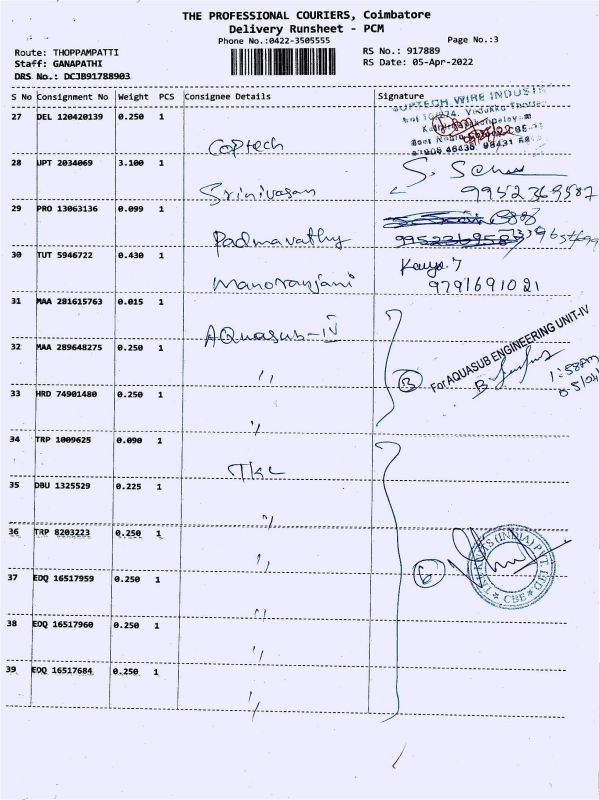 THE PROFESSIONAL COURIERS, Coimbatore
Delivery Runsheet - PCM
Phone No.:0422-3505555
Page No.:3
Route: THOPPAMPATTI
RS No.: 917889
Staff: GANAPATHI
RS Date: 05-Apr-2022
DRS No.: DCJB91788903
S No Consignment No Weight PCS Consignee Details Signature
27 DEL 120420139 0.250 1
Coptech
28 UPT 2034069 3.100 1
Srinivasan
S.
9952369587
29 PRO 13063136 0.099 1
Padmavathy
30 TUT 5946722 0.430 1
Manoranjani
9791691021
31 MAA 281615763 0.015 1
AQuasub-IV
32 MAA 289648275 0.250 1
〃
For AQUASUB ENGINEERING UNIT-IV
1:58PM
33 HRD 74901480 0.250 1
〃
34 TRP 1009625 0.090 1
TKL
35 DBU 1325529 0.225 1
〃
36 TRP 8203223 0.250 1
〃
6
(INDIA) PVT. LTD
CBE
37 EDQ 16517959 0.250 1
〃
38 EDQ 16517960 0.250 1
〃
39 EDQ 16517684 0.250 1
〃